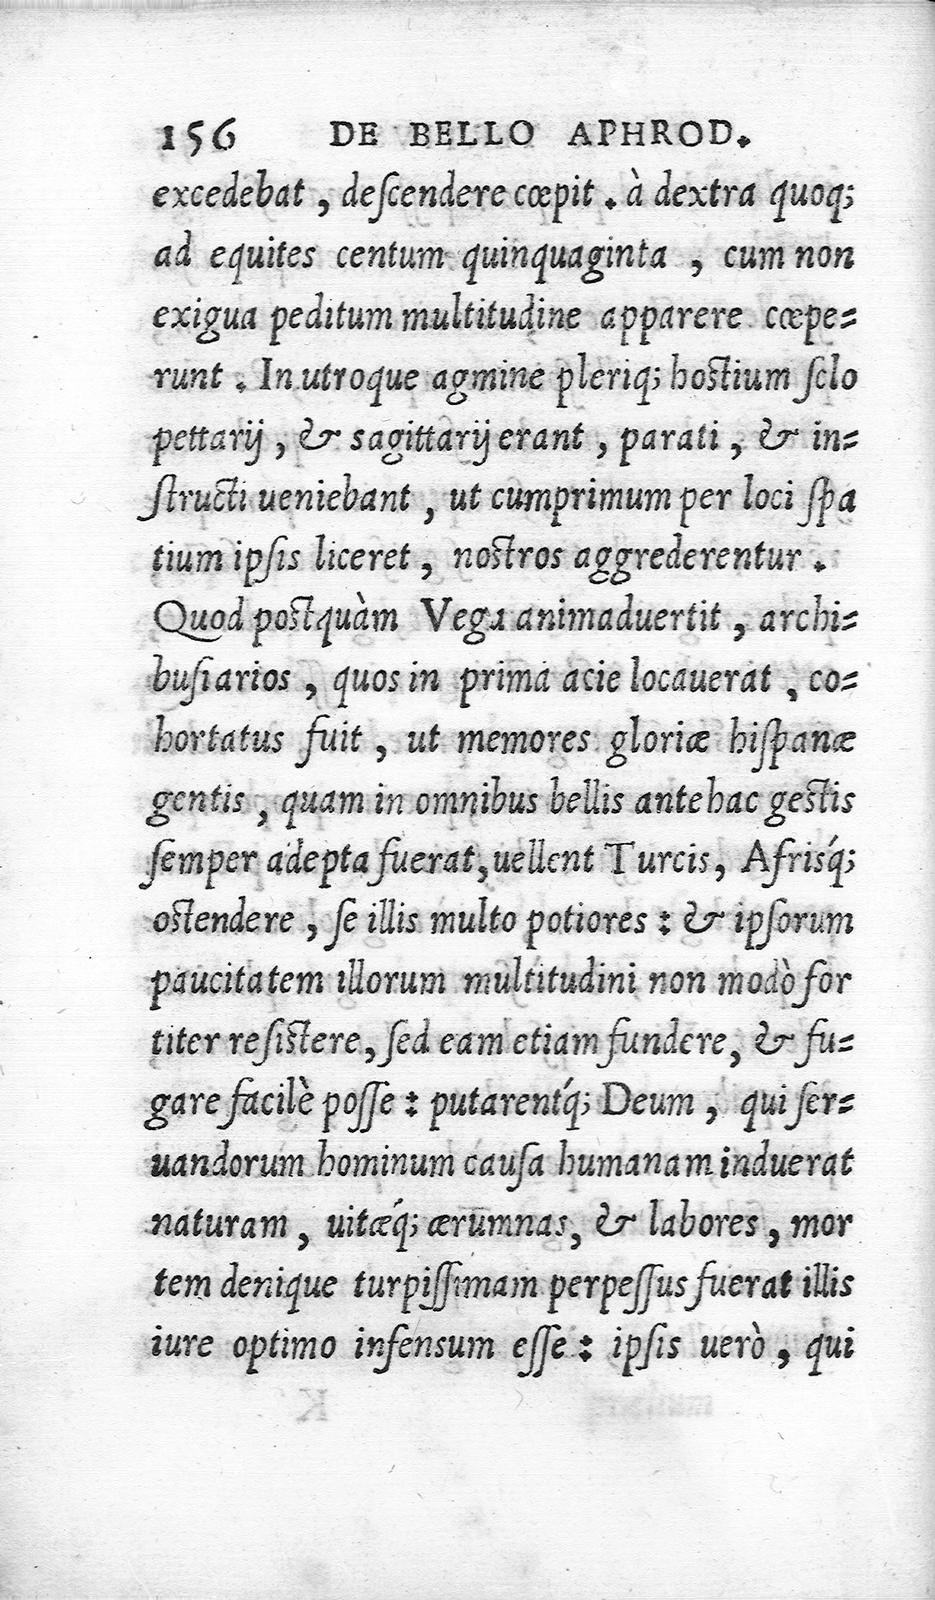 156 DE BELLO APHROD.
excedebat, deſcendere cœpit. à dextra quoq;
ad equites centum quinquaginta, cum non
exigua peditum multitudine apparere cœpe=
runt. In utroque agmine pleriq; hoſtium ſclo
pettarij, & sagittarij erant, parati, & in=
ſtructi ueniebant, ut cumprimum per loci ſpa
tium ipſis liceret, noſtros aggrederentur.
Quod poſtquàm Vega animaduertit, archi=
buſiarios, quos in prima acie locauerat, co=
hortatus fuit, ut memores gloriæ hiſpanæ
gentis, quam in omnibus bellis antehac geſtis
ſemper adepta fuerat, uellent Turcis, Afrisq́;
oſtendere, ſe illis multo potiores: & ipſorum
paucitatem illorum multitudini non modò for
titer reſiſtere, ſed eam etiam fundere, & fu=
gare facilè poſſe: putarentq́; Deum, qui ſer=
uandorum hominum cauſa humanam induerat
naturam, uitæq́; ærumnas, & labores, mor
tem denique turpiſſimam perpeſſus fuerat illis
iure optimo infenſum eſſe: ipſis uerò, qui